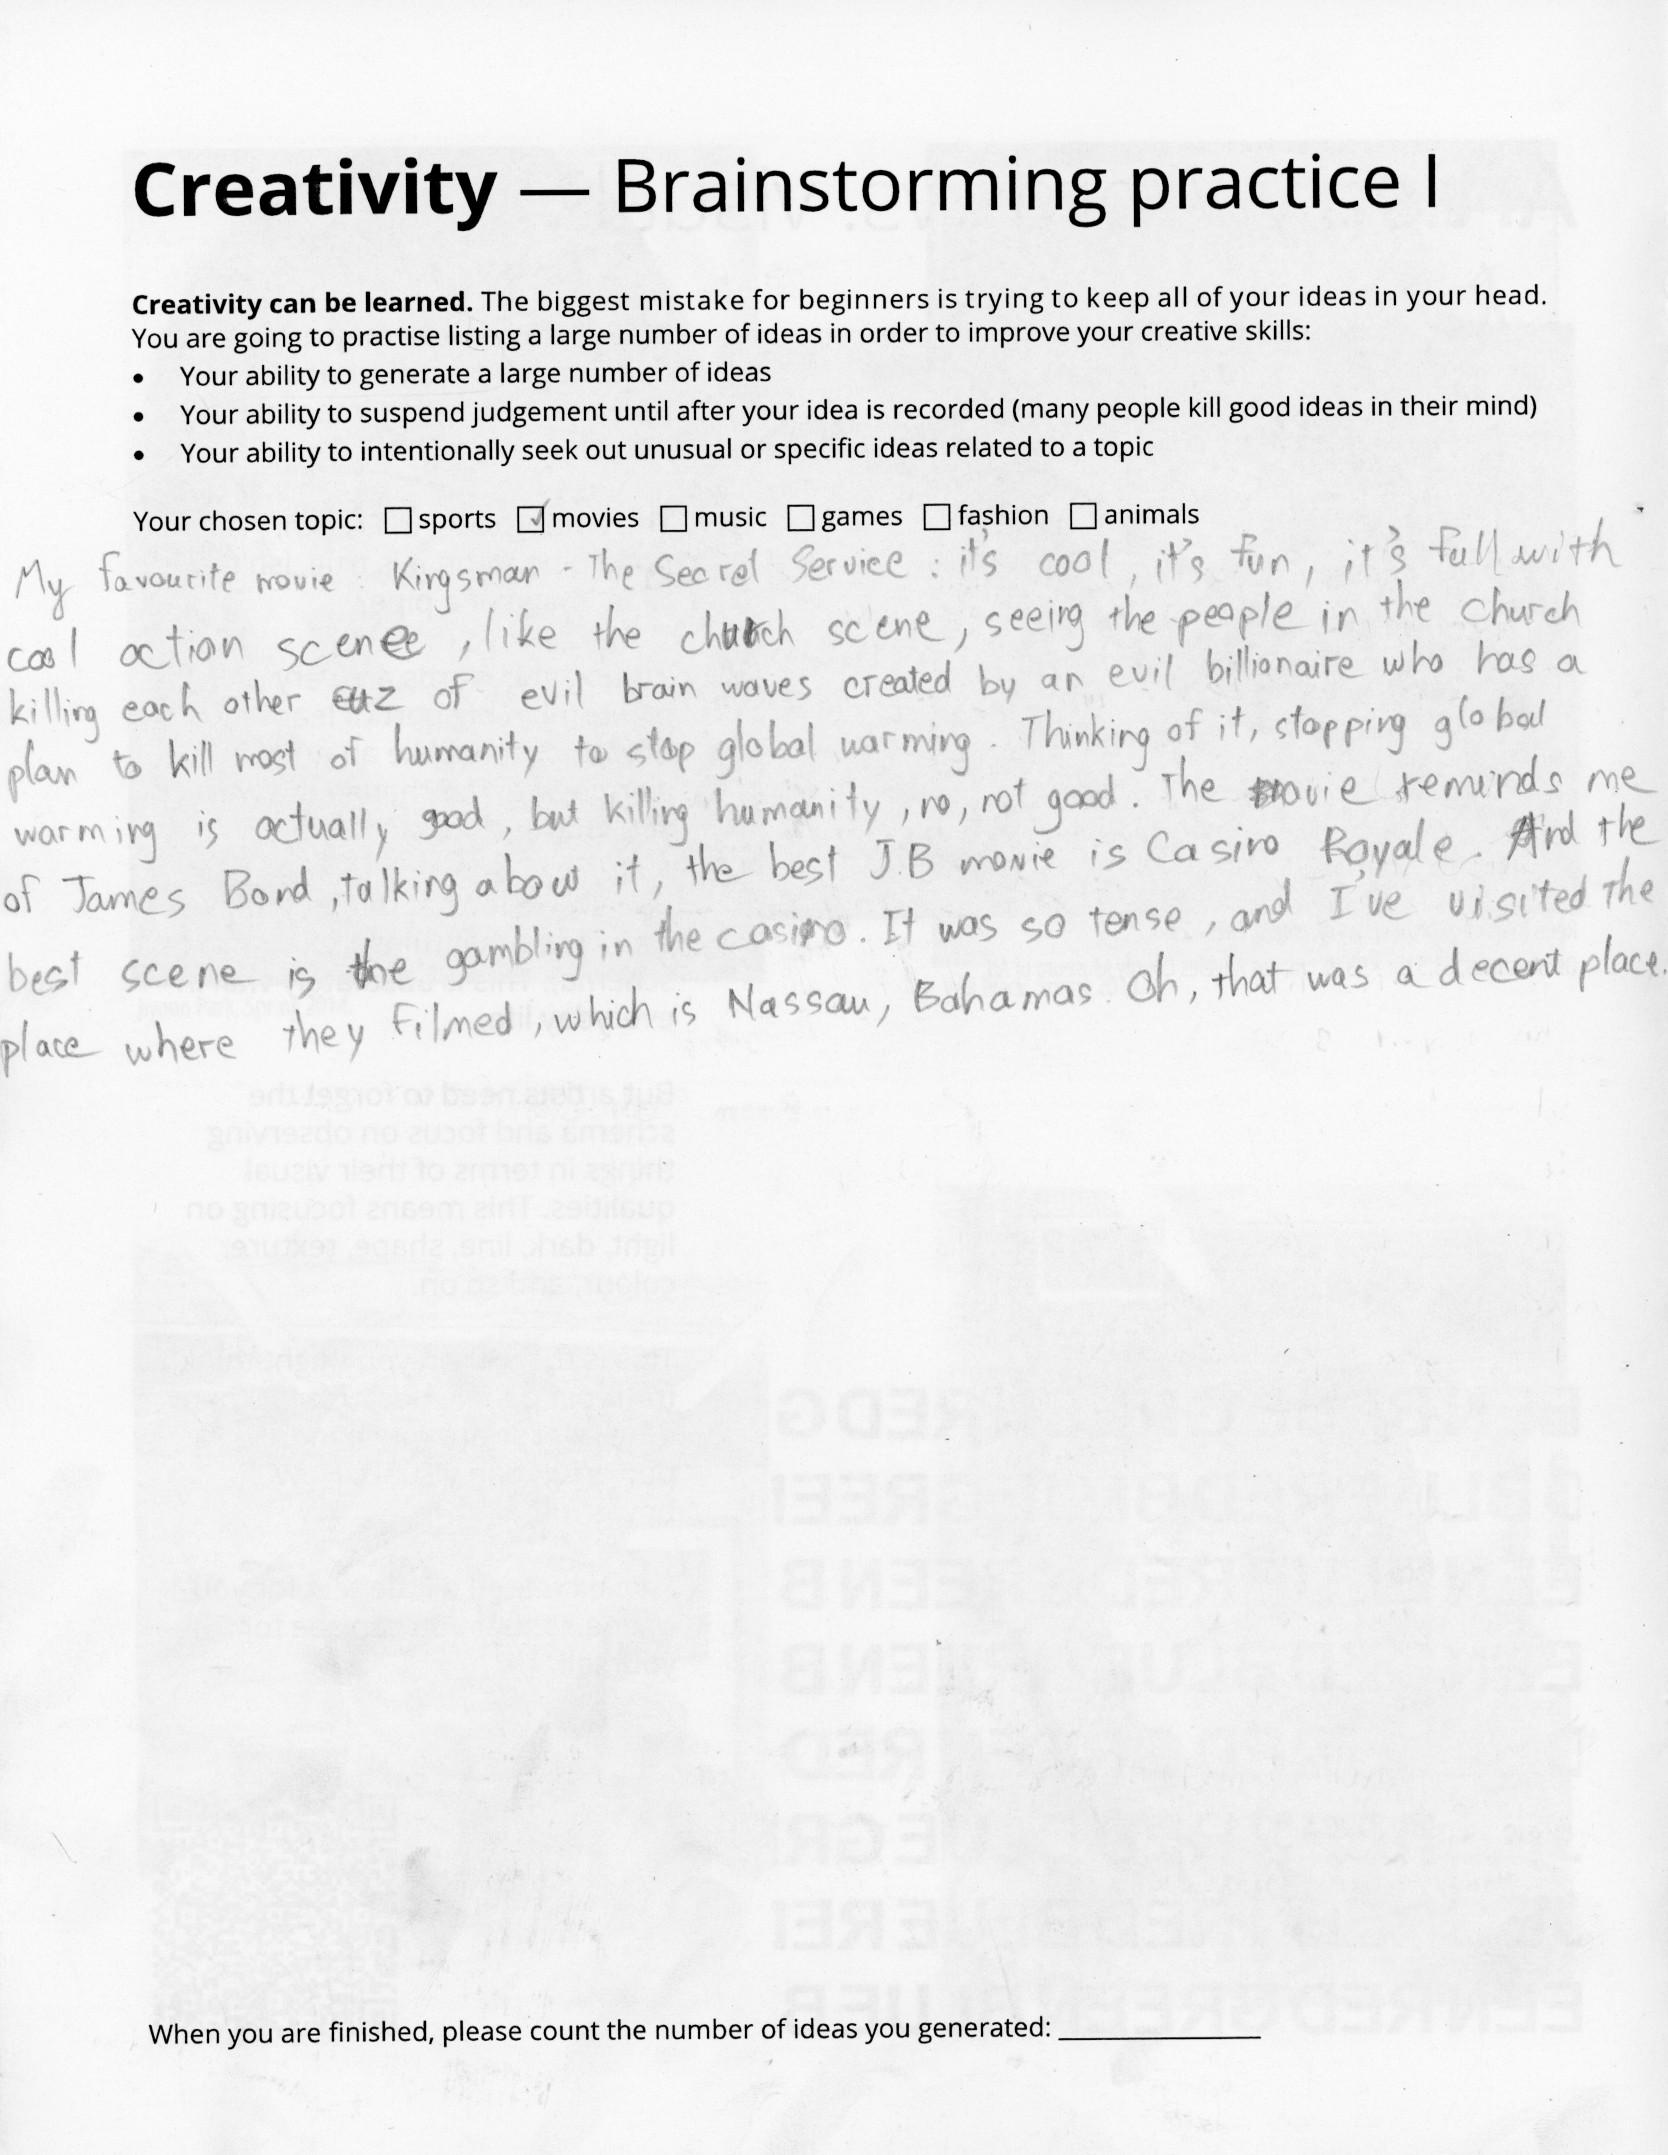 Creativity — Brainstorming practice I
Creativity can be learned. The biggest mistake for beginners is trying to keep all of your ideas in your head.
You are going to practise listing a large number of ideas in order to improve your creative skills:
• Your ability to generate a large number of ideas
• Your ability to suspend judgement until after your idea is recorded (many people kill good ideas in their mind)
• Your ability to intentionally seek out unusual or specific ideas related to a topic
Your chosen topic: ☐ sports ☑ movies ☐ music ☐ games ☐ fashion ☐ animals
My favourite movie : Kingsman - The Secret Service : it's cool, it's fun, it's full with
cool action scene, like the church scene, seeing the people in the church
killing each other cuz of evil brain waves created by an evil billionaire who has a
plan to kill most of humanity to stop global warming. Thinking of it, stopping global
warming is actually good, but killing humanity, no, not good. The movie reminds me
of James Bond, talking about it, the best J.B movie is Casino Royale. And the
best scene is the gambling in the casino. It was so tense, and I've visited the
place where they filmed, which is Nassau, Bahamas. Oh, that was a decent place.
But artists need to forget the
schema and focus on observing
thinks in terms of their visual
qualities. This means focusing on
light, dark, line, shape, texture,
colour, and so on.
When you are finished, please count the number of ideas you generated: